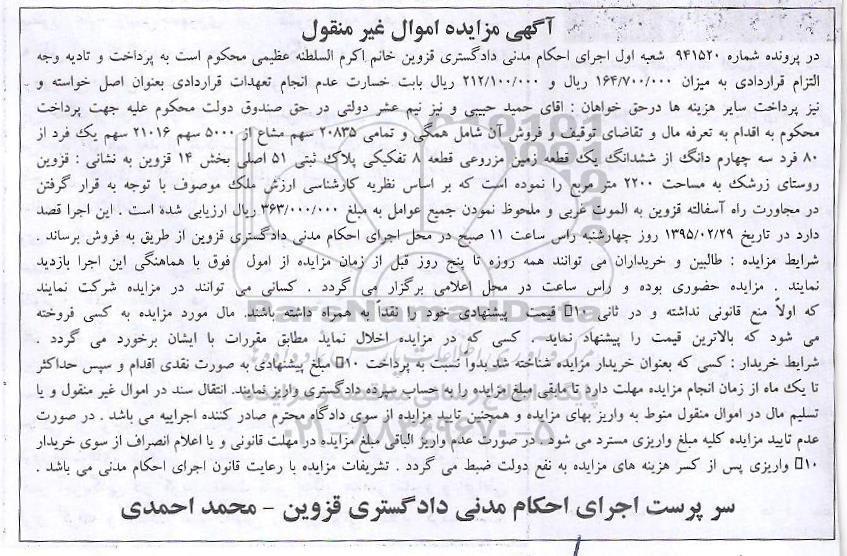 آگهی مزایده اموال غیر منقول
در پرونده شماره ۹۴۱۵۲۰ شعبه اول اجرای احکام مدنی دادگستری قزوین خانم اکرم السلطنه عظیمی محکوم است به پرداخت و تادیه وجه
التزام قراردادی به میزان ۱۶۴/۷۰۰/۰۰۰ ریال و ۲۱۲/۱۰۰/۰۰۰ ریال بابت خسارت عدم انجام تعهدات قراردادی بعنوان اصل خواسته و
نیز پرداخت سایر هزینه ها درحق خواهان : اقای حمید حبیبی و نیز نیم عشر دولتی در حق صندوق دولت محکوم علیه جهت پرداخت
محکوم به اقدام به تعرفه مال و تقاضای توقیف و فروش آن شامل همگی و تمامی ۲۰۸۳۵ سهم مشاع از ۵۰۰۰ سهم ۲۱۰۱۶ سهم یک فرد از
۸۰ فرد سه چهارم دانگ از ششدانگ یک قطعه زمین مزروعی قطعه ۸ تفکیکی پلاک ثبتی ۵۱ اصلی بخش ۱۴ قزوین به نشانی : قزوین
روستای زرشک به مساحت ۲۲۰۰ متر مربع را نموده است که بر اساس نظریه کارشناسی ارزش ملک موصوف با توجه به قرار گرفتن
در مجاورت راه آسفالته قزوین به الموت غربی و ملحوظ نمودن جمیع عوامل به مبلغ ۳۶۳/۰۰۰/۰۰۰ ریال ارزیابی شده است . این اجرا قصد
دارد در تاریخ ۱۳۹۵/۰۲/۲۹ روز چهارشنبه راس ساعت ۱۱ صبح در محل اجرای احکام مدنی دادگستری قزوین از طریق به فروش برساند .
شرایط مزایده : طالبین و خریداران می توانند همه روزه تا پنج روز قبل از زمان مزایده از امول فوق با هماهنگی این اجرا بازدید
نمایند . مزایده حضوری بوده و راس ساعت در محل اعلامی برگزار می گردد . کسانی می توانند در مزایده شرکت نمایند
که اولاً منع قانونی نداشته و در ثانی ۱۰ قیمت پیشنهادی خود را نقداً به همراه داشته باشند. مال مورد مزایده به کسی فروخته
می شود که بالاترین قیمت را پیشنهاد نماید. کسی که در مزایده اخلال نماید مطابق مقررات با ایشان برخورد می گردد .
شرایط خریدار : کسی که بعنوان خریدار مزایده شناخته شد بدوا نسبت به پرداخت ۱۰ مبلغ پیشنهادی به صورت نقدی اقدام و سپس حداکثر
تا یک ماه از زمان انجام مزایده مهلت دارد تا مابقی مبلغ مزایده را به حساب سپرده دادگستری واریز نمایند. انتقال سند در اموال غیر منقول و یا
تسلیم مال در اموال منقول منوط به واریز بهای مزایده و همچنین تایید مزایده از سوی دادگاه محترم صادر کننده اجراییه می باشد . در صورت
عدم تایید مزایده کلیه مبلغ واریزی مسترد می شود. در صورت عدم واریز الباقی مبلغ مزایده در مهلت قانونی و یا اعلام انصراف از سوی خریدار
۱۰ واریزی پس از کسر هزینه های مزایده به نفع دولت ضبط می گردد . تشریفات مزایده با رعایت قانون اجرای احکام مدنی می باشد .
سر پرست اجرای احکام مدنی دادگستری قزوین - محمد احمدی
ParsNamadData
۰۲۱-۸۸۳۴۹۶۷۰-۵